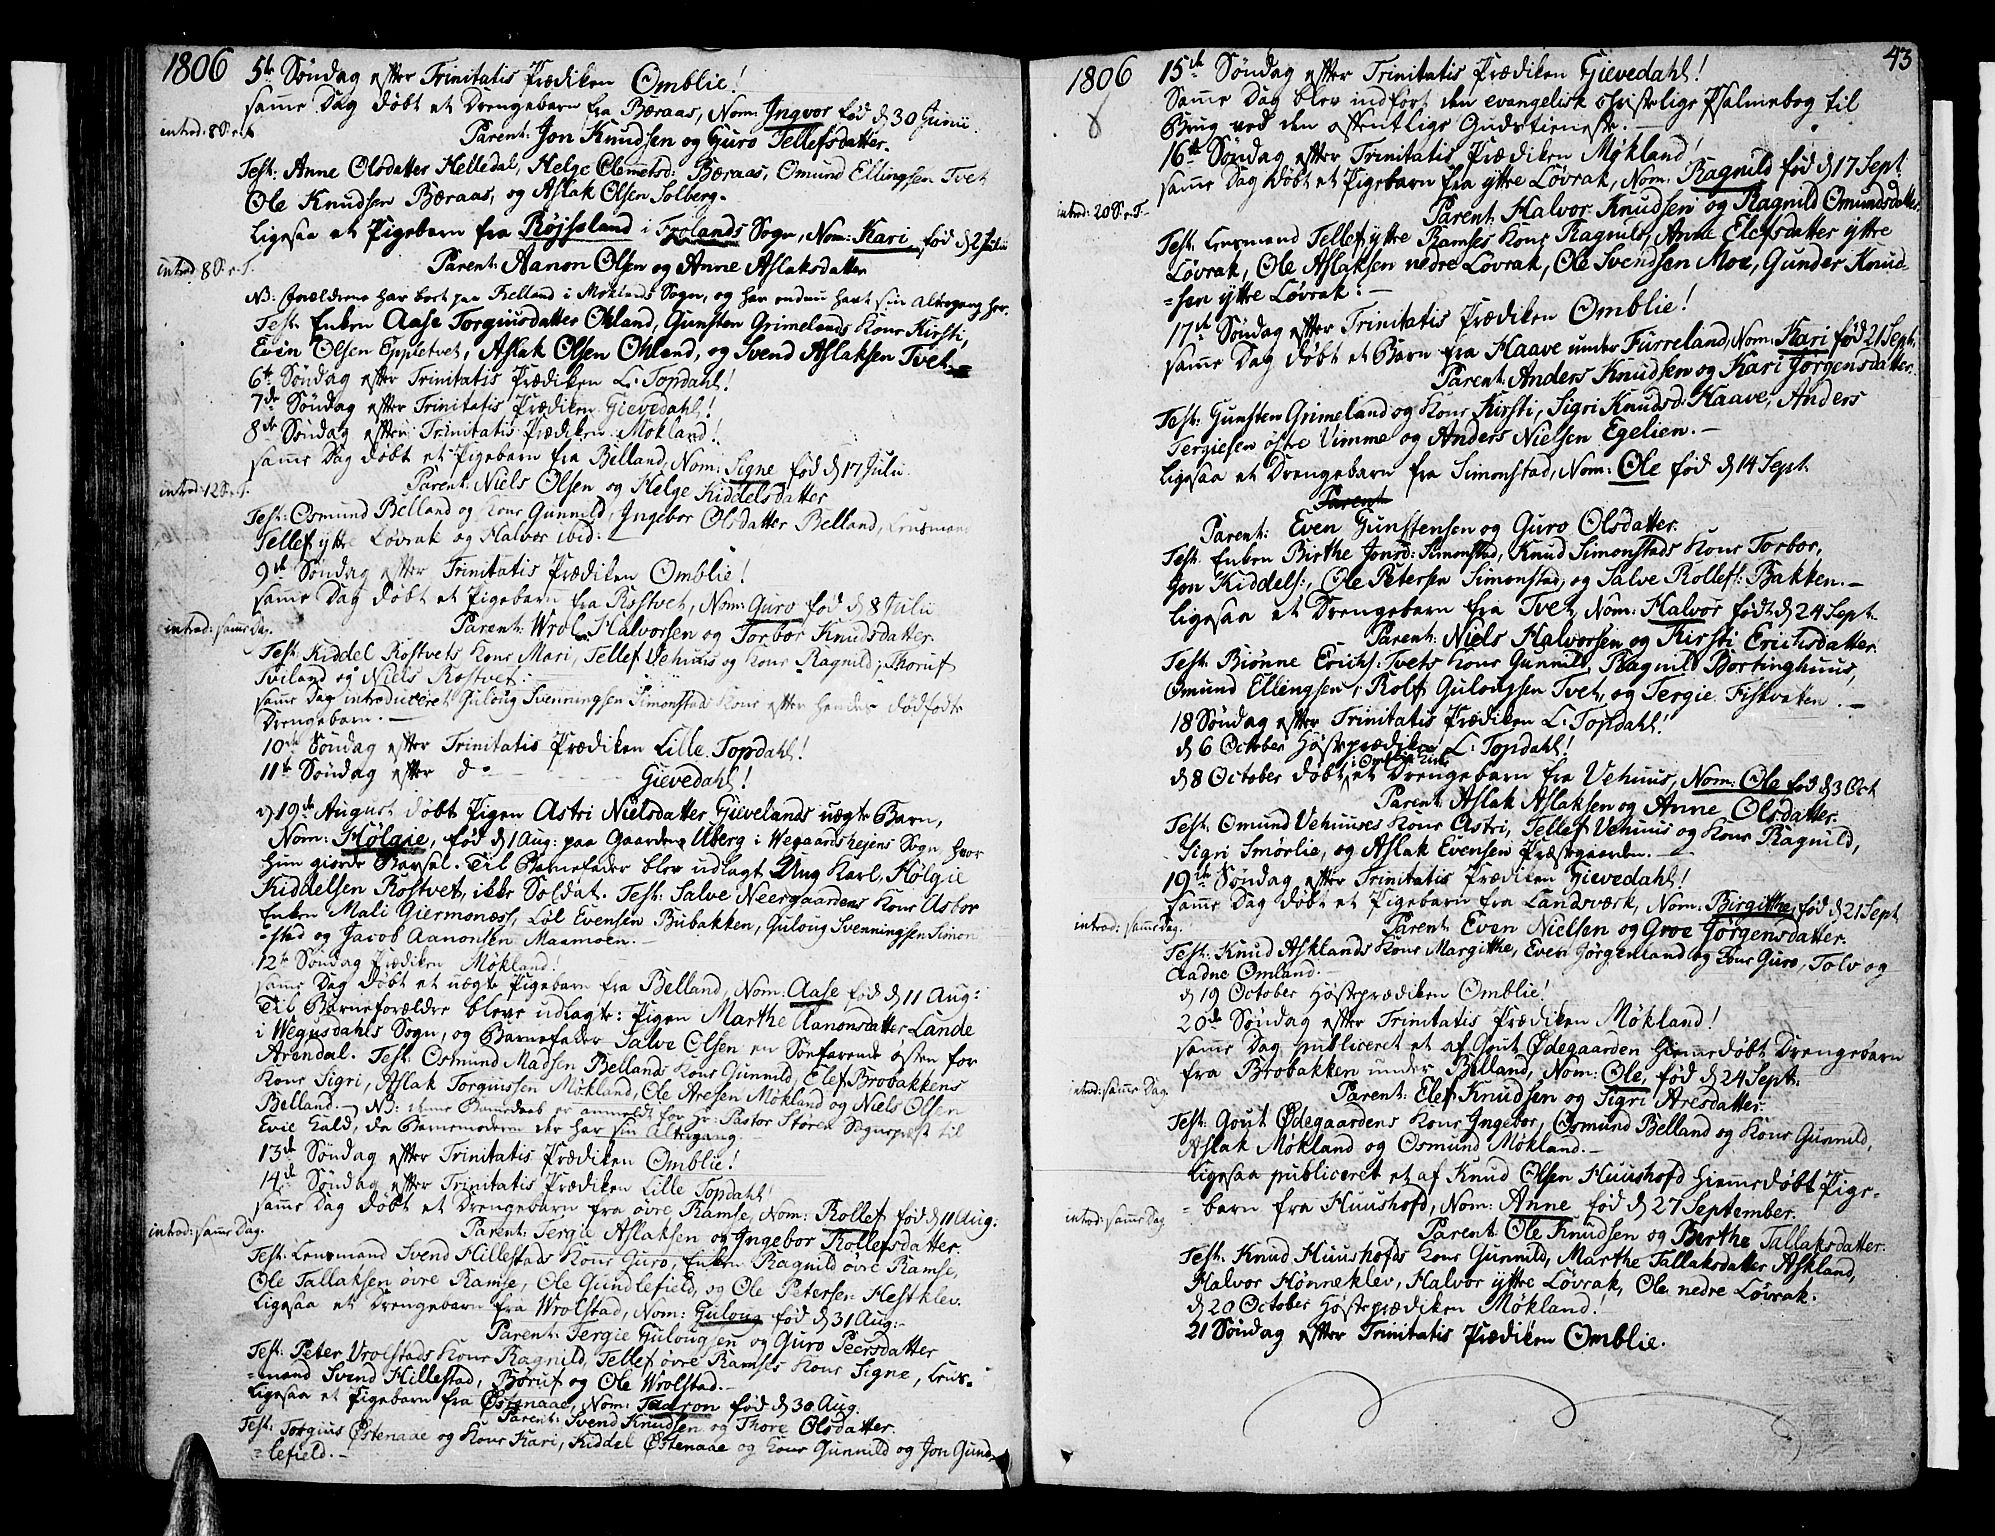 1806
5te Søndag efter Trinitatis Prædiken Omblie!
samme Dag døbt et Drengebarn fra Bæraas, Nom: Ingvor fød d 30 Junii.
introd: 8 S. e. T.
Parent: Jon Knudsen og Guro Tellefsdatter.
Test: Anne Olsdatter Helledal, Helge Clemetsd: Bæraas, Omund Ellingsen Tvet
Ole Knudsen Bæraas, og Aslak Olsen Solberg.
Ligesaa et Pigebarn fra Røjseland i Frolands Sogn, Nom: Kari fød d 2 Julii
introd 8 S. e. T.
Parent: Aanon Olsen og Anne Aslaksdatter
NB: Forældrene har boet paa Felland i Møklands Sogn, og har endnu havt sin Altergang her.
Test: Enken Aase Torguusdatter Ohland, Gunsten Grimelands Kone Kirsti,
Even Olsen Eppletvet, Aslak Olsen Ohland, og Svend Aslaksen Tvet.
6te Søndag efter Trinitatis Prædiken L: Topdahl!
7de Søndag efter Trinitatis Prædiken Gievedahl!
8de Søndag efter Trinitatis Prædiken Mökland!
samme Dag døbt et Pigebarn fra Belland, Nom: Signe fød d 17 Julii
introd: 12 S. e. T.
Parent: Niels Olsen og Helge Kiddelsdatter
Test: Osmund Belland og Kone Gunnild, Ingebor Olsdatter Belland, Lensmand
Tellef yttre Løvrak og Halvor ibid:
9de Søndag efter Trinitatis Prædiken Omblie!
samme Dag døbt et Pigebarn fra Rostvet, Nom: Guro fød d 8 Julii
introd: samme Da.
Parent: Wrol Halvorsen og Torbor Knudsdatter.
Test: Kiddel Rostvets Kone Mari, Tellef Vehuus og Kone Ragnild, Thoruf
Tveland og Niels Rostvet:
samme Dag introduceret Guloug Svenningsen Simonstads Kone efter hendes dødfødte
Drengebarn.
10de Søndag efter Trinitatis Prædiken Lille Topdahl!
11te Søndag efter d° Gievedahl!
d 19de August døbt Pigen Astri Nielsdatter Gievelands uægte Barn,
Nom: Hølgie, fød d 1 Aug: paa Gaarden Uberg i Wegaardshejens Sogn, hvor
hun giorde Barsel. Til Barnefader blev udlagt Ung Karl, Hølgie
Kiddelsen Rostvet, ikke Soldat. Test: Salve Neergaardens Kone Asbor
Enken Mali Giermonoss, Løl Evensen Bubakken, Guloug Svenningsen Simon
=sted og Jacob Aanonsen Maamoen.
12te Søndag Prædiken Mökland!
samme Dag døbt et uægte Pigebarn fra Belland, Nom: Aase fød d 11 Aug:
Til Barneforældre bleve udlagte: Pigen Marthe Aanonsdatter Lande
i Wegusdahls Sogn, og Barnefader Salve Olsen en Søefarende østen for
Arendal. Test: Osmund Madsen Bellands Kone Gunnild, Elef Brobakkens
Kone Sigri, Aslak Torguussen Mökland, Ole Aresen Mökland og Niels Olsen
Belland. NB: denne Barnedaab er anmeldt for Hr: Pastor Storen Sognepræst til
Evie Kald, da Barnemoderen der har sin Altergang.
13de Søndag efter Trinitatis Prædiken Omblie!
14de Søndag efter Trinitatis Prædiken Lille Topdahl!
samme Dag døbt et Drengebarn fra øvre Ramse, Nom: Rollef fød d 11 Aug:
introd: samme Dag.
Parent: Tergie Aslaksen og Ingebor Rollefsdatter.
Test: Lensmand Svend Hillestads Kone Guro, Enken Ragnild øvre Ramse,
Ole Tallaksen øvre Ramse, Ole Gundlefield, og Ole Petersen Hestklev.
Ligesaa et Drengebarn fra Wrolstad, Nom: Guloug fød d 31 Aug:
Parent: Tergie Gulougsen og Guro Peersdatter
Test: Peter Vrolstads Kone Ragnild, Tellef øvre Ramses Kone Signe, Lens=
=mand Svend Hillestad, Børuf og Ole Wrolstad.
Ligesaa et Pigebarn fra Østenaae, Nom: Taaron fød d 30 Aug.
Parent: Svend Knudsen og Thore Olsdatter.
Test: Torguus Østenaae og Kone Kari, Kiddel Østenaae og Kone Gunnild og Jon Gund=
=lefield.
1806
43
15de Søndag efter Trinitatis Prædiken Gievedahl!
Samme Dag blev indført den evangelisk christelige Psalmebog til
Brug ved den offentlige Gudstieneste.
16de Søndag efter Trinitatis Prædiken Mökland!
samme Dag døbt et Pigebarn fra yttre Løvrak, Nom: Ragnild fød d 17 Sept:
introd: 20 S. e. T.
Parent: Halvor Knudsen og Ragnild Omundsdatter
Test: Lensmand Tellef yttre Ramses Kone Ragnild, Anne Elefsdatter yttre
Løvrak, Ole Aslaksen nedre Løvrak, Ole Svendsen Moe, Gunder Knud=
=sen yttre Løvrak:
17de Søndag efter Trinitatis Prædiken Omblie!
samme Dag døbt et Barn fra Haave under Furreland, Nom: Kari fød 21 Sept:
Parent: Anders Knudsen og Kari Jørgensdatter.
Test: Gunsten Grimeland og Kone Kirsti, Sigri Knudsd: Haave, Anders
Tergiesen østre Vimme og Anders Nielsen Egelien.
Ligesaa et Drengebarn fra Simonstad, Nom: Ole fød d 14 Sept.
Parent
Parent: Even Gunstensen og Guro Olsdatter.
Test: Enken Birthe Jonsd: Simonstad, Knud Simonstads Kone Torbor,
Jon Kiddels:, Ole Petersen Simonstad, og Salve Rollefs: Bakken.
Ligesaa et Drengebarn fra Tvet, Nom: Halvor født d 24 Sept.
Parent: Niels Halvorsen og Kirsti Erichsdatter.
Test: Biønne Erichs: Tvets Kone Gunnild, Ragnil Bortinghuus,
Omund Ellingsen, Rolf Gulougsen Tvet, og Tergie Fiskvaten.
18 Søndag efter Trinitatis Prædiken L: Topdahl!
d 6 October Høsteprædiken L: Topdahl!
d 8 October døbt i Omblie Kirke et Drengebarn fra Vehuus, Nom: Ole fød d 3 Oct
Parent: Aslak Aslaksen og Anne Olsdatter.
Test: Omund Vehuuses Kone Astri, Tellef Vehuus og Kone Ragnild,
Sigri Smørlie, og Aslak Evensen Præstegaarden.
19de Søndag efter Trinitatis Prædiken Gievedahl!
samme Dag døbt et Pigebarn fra Landværk, Nom: Birgitthe, fød d 21 Sept.
introd: samme Dag.
Parent: Even Nielsen og Groe Jørgensdatter.
Test: Knud Asklands Kone Margithe, Even Jørgenland og Kone Guro, Tolv og
Aadne Omland.
d 19 October Høsteprædiken Omblie!
20de Søndag efter Trinitatis Prædiken Mökland!
samme Dag publiceret et af Gout Ødegaarden hiemmedøbt Drengebarn
fra Brobakken under Belland, Nom: Ole, fød d 24 Sept:
introd: samme Dag.
Parent: Elef Knudsen og Sigri Aresdatter
Test: Gout Ødegaardens Kone Ingebor, Osmund Belland og Kone Gunnild,
Aslak Mökland og Osmund Mökland.
Ligesaa publiceret et af Knud Olsen Huushofd hiemmedøbt Pige=
=barn fra Huushofd, Nom: Anne fød d 27 September.
introd: samme Dag
Parent: Ole Knudsen og Berthe Tallaksdatter.
Test: Knud Huushofds Kone Gunnild, Marthe Tallaksdatter Askland,
Halvor Hønneklev, Halvor yttre Løvrak, Ole nedre Løvrak.
d 20 October Høsteprædiken Mökland.
21 Søndag efter Trinitatis Prædiken Omblie.